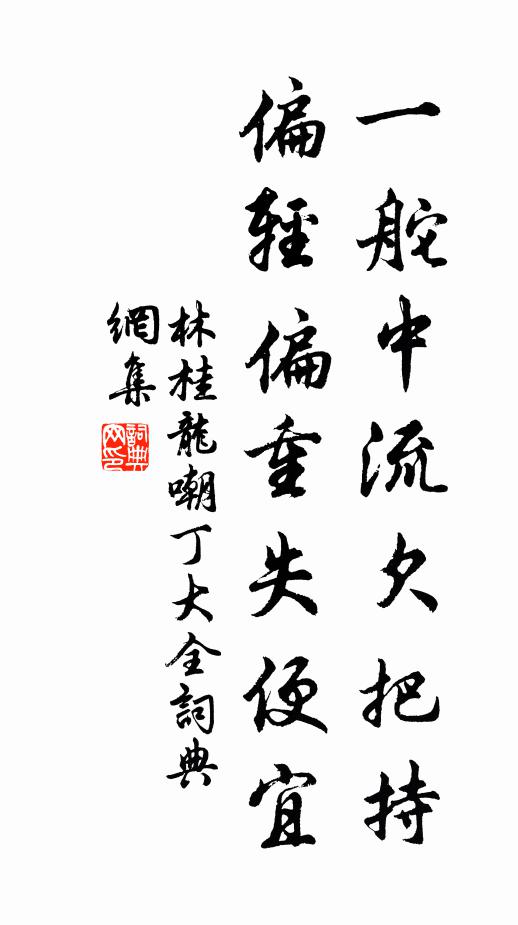 一舵中流欠把持
偏輕偏重失便宜
林桂龍嘲丁大全詞典
網集
詞典
网印